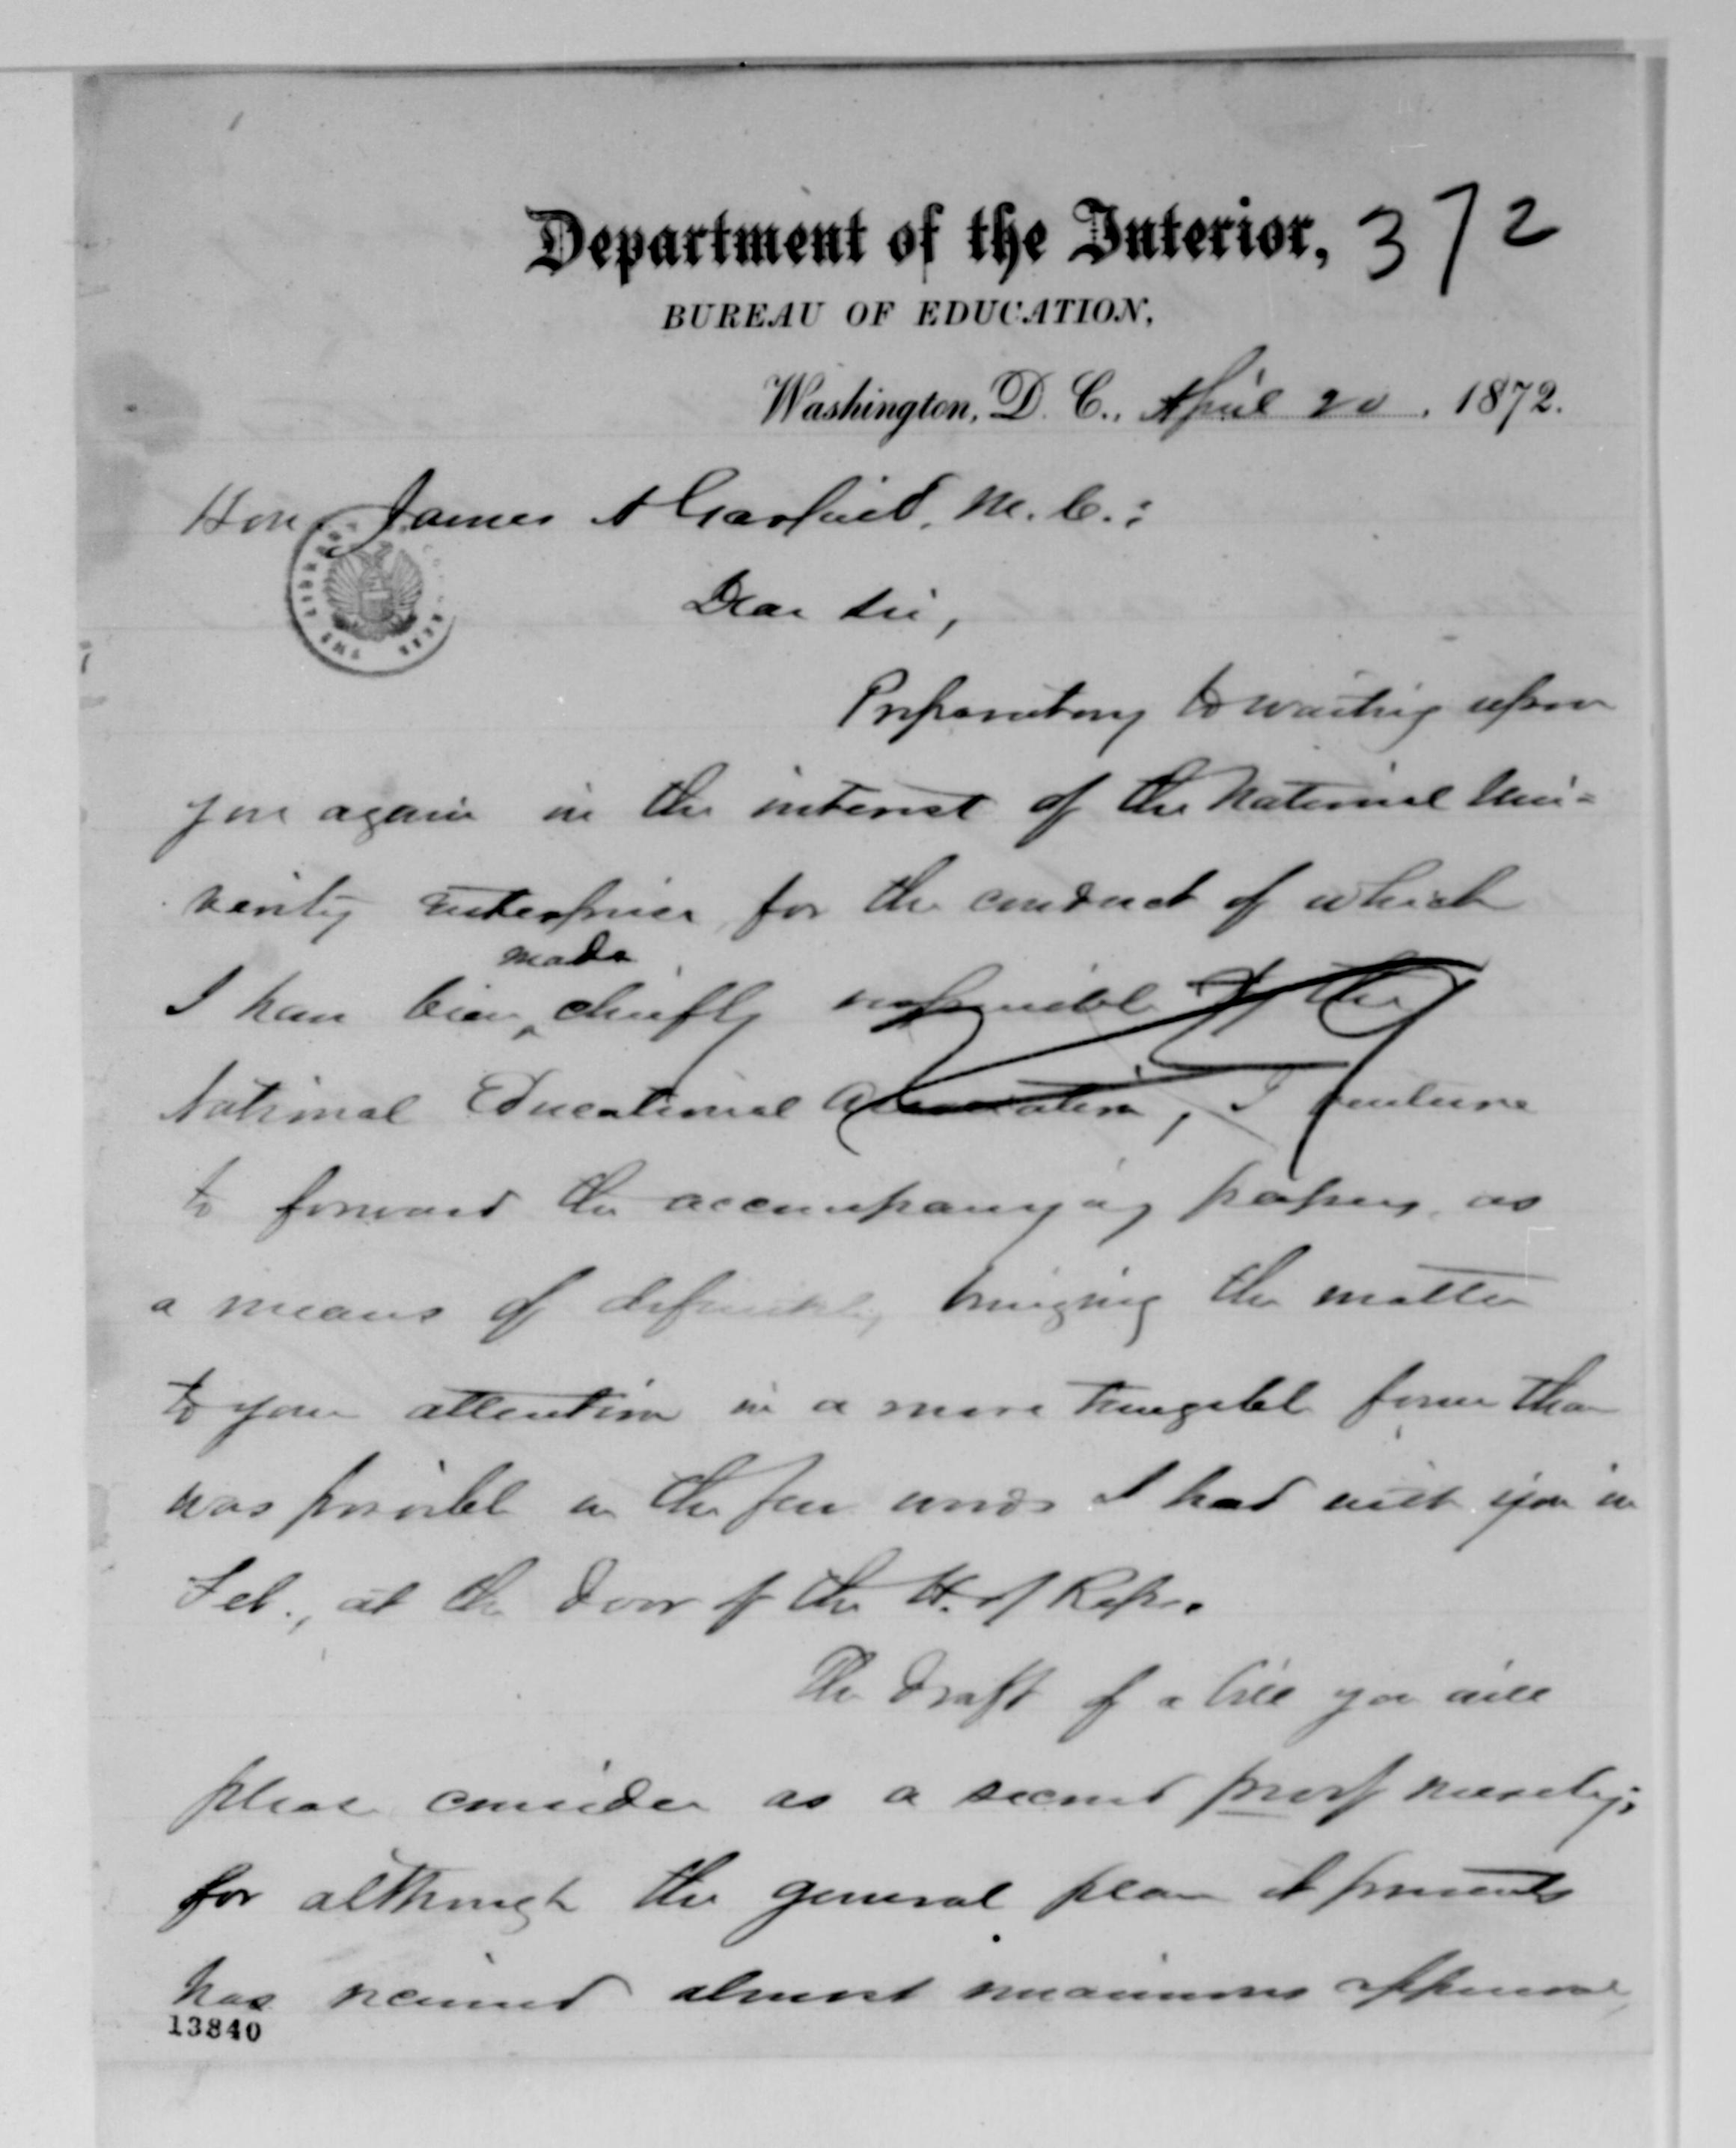 Department of the Interior, 372
BUREAU OF EDUCATION,
Washington, D. C., April 20, 1872.
Hon. James A Garfield, M. C.:
Dear Sir,
Preparatory to waiting upon
you again in the interest of the National Uni-
versity enterprise, for the conduct of which
made
I have been chiefly responsible by the
National Educational Association, I venture
to forward the accompanying papers, as
a means of definitely bringing the matter
to your attention in a more tangible form than
was possible in the few words I had with you in
Feb., at the door of the H. of Reps.
The draft of a bill you will
please consider as a second proof merely;
for although the general plan it presents
has received almost unanimous approval,
13840